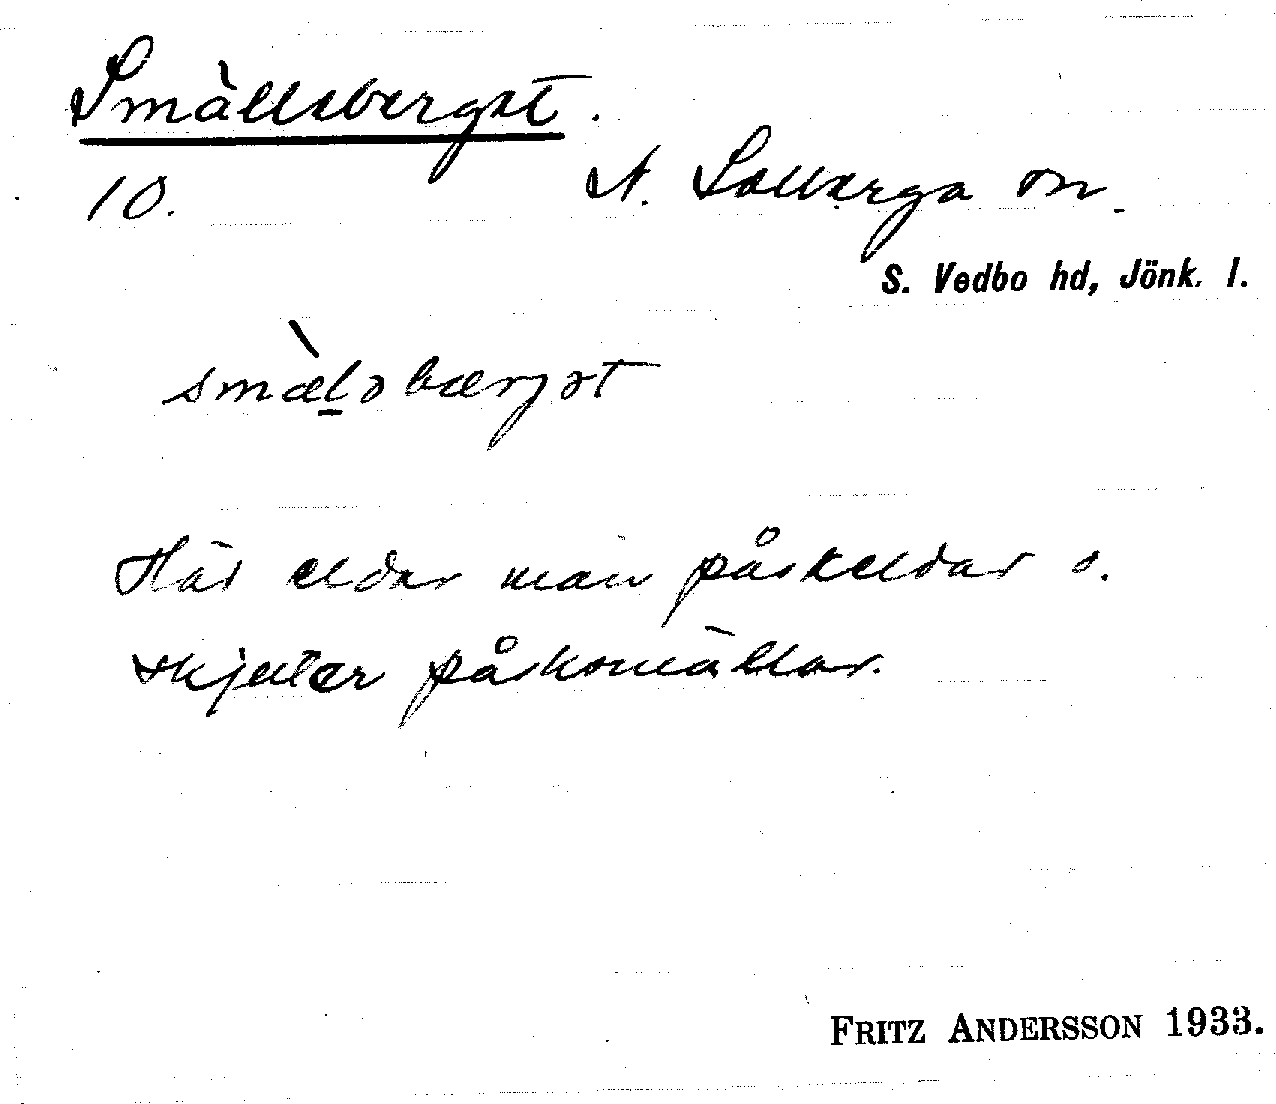 Smällsberget.
10. N. Solberga sn.
S. Vedbo hd, Jönk. l.
smæ̀lsbærjət
Här eldar man påskeldar o.
skjuter påsksmällar.
FRITZ ANDERSSON 1933.